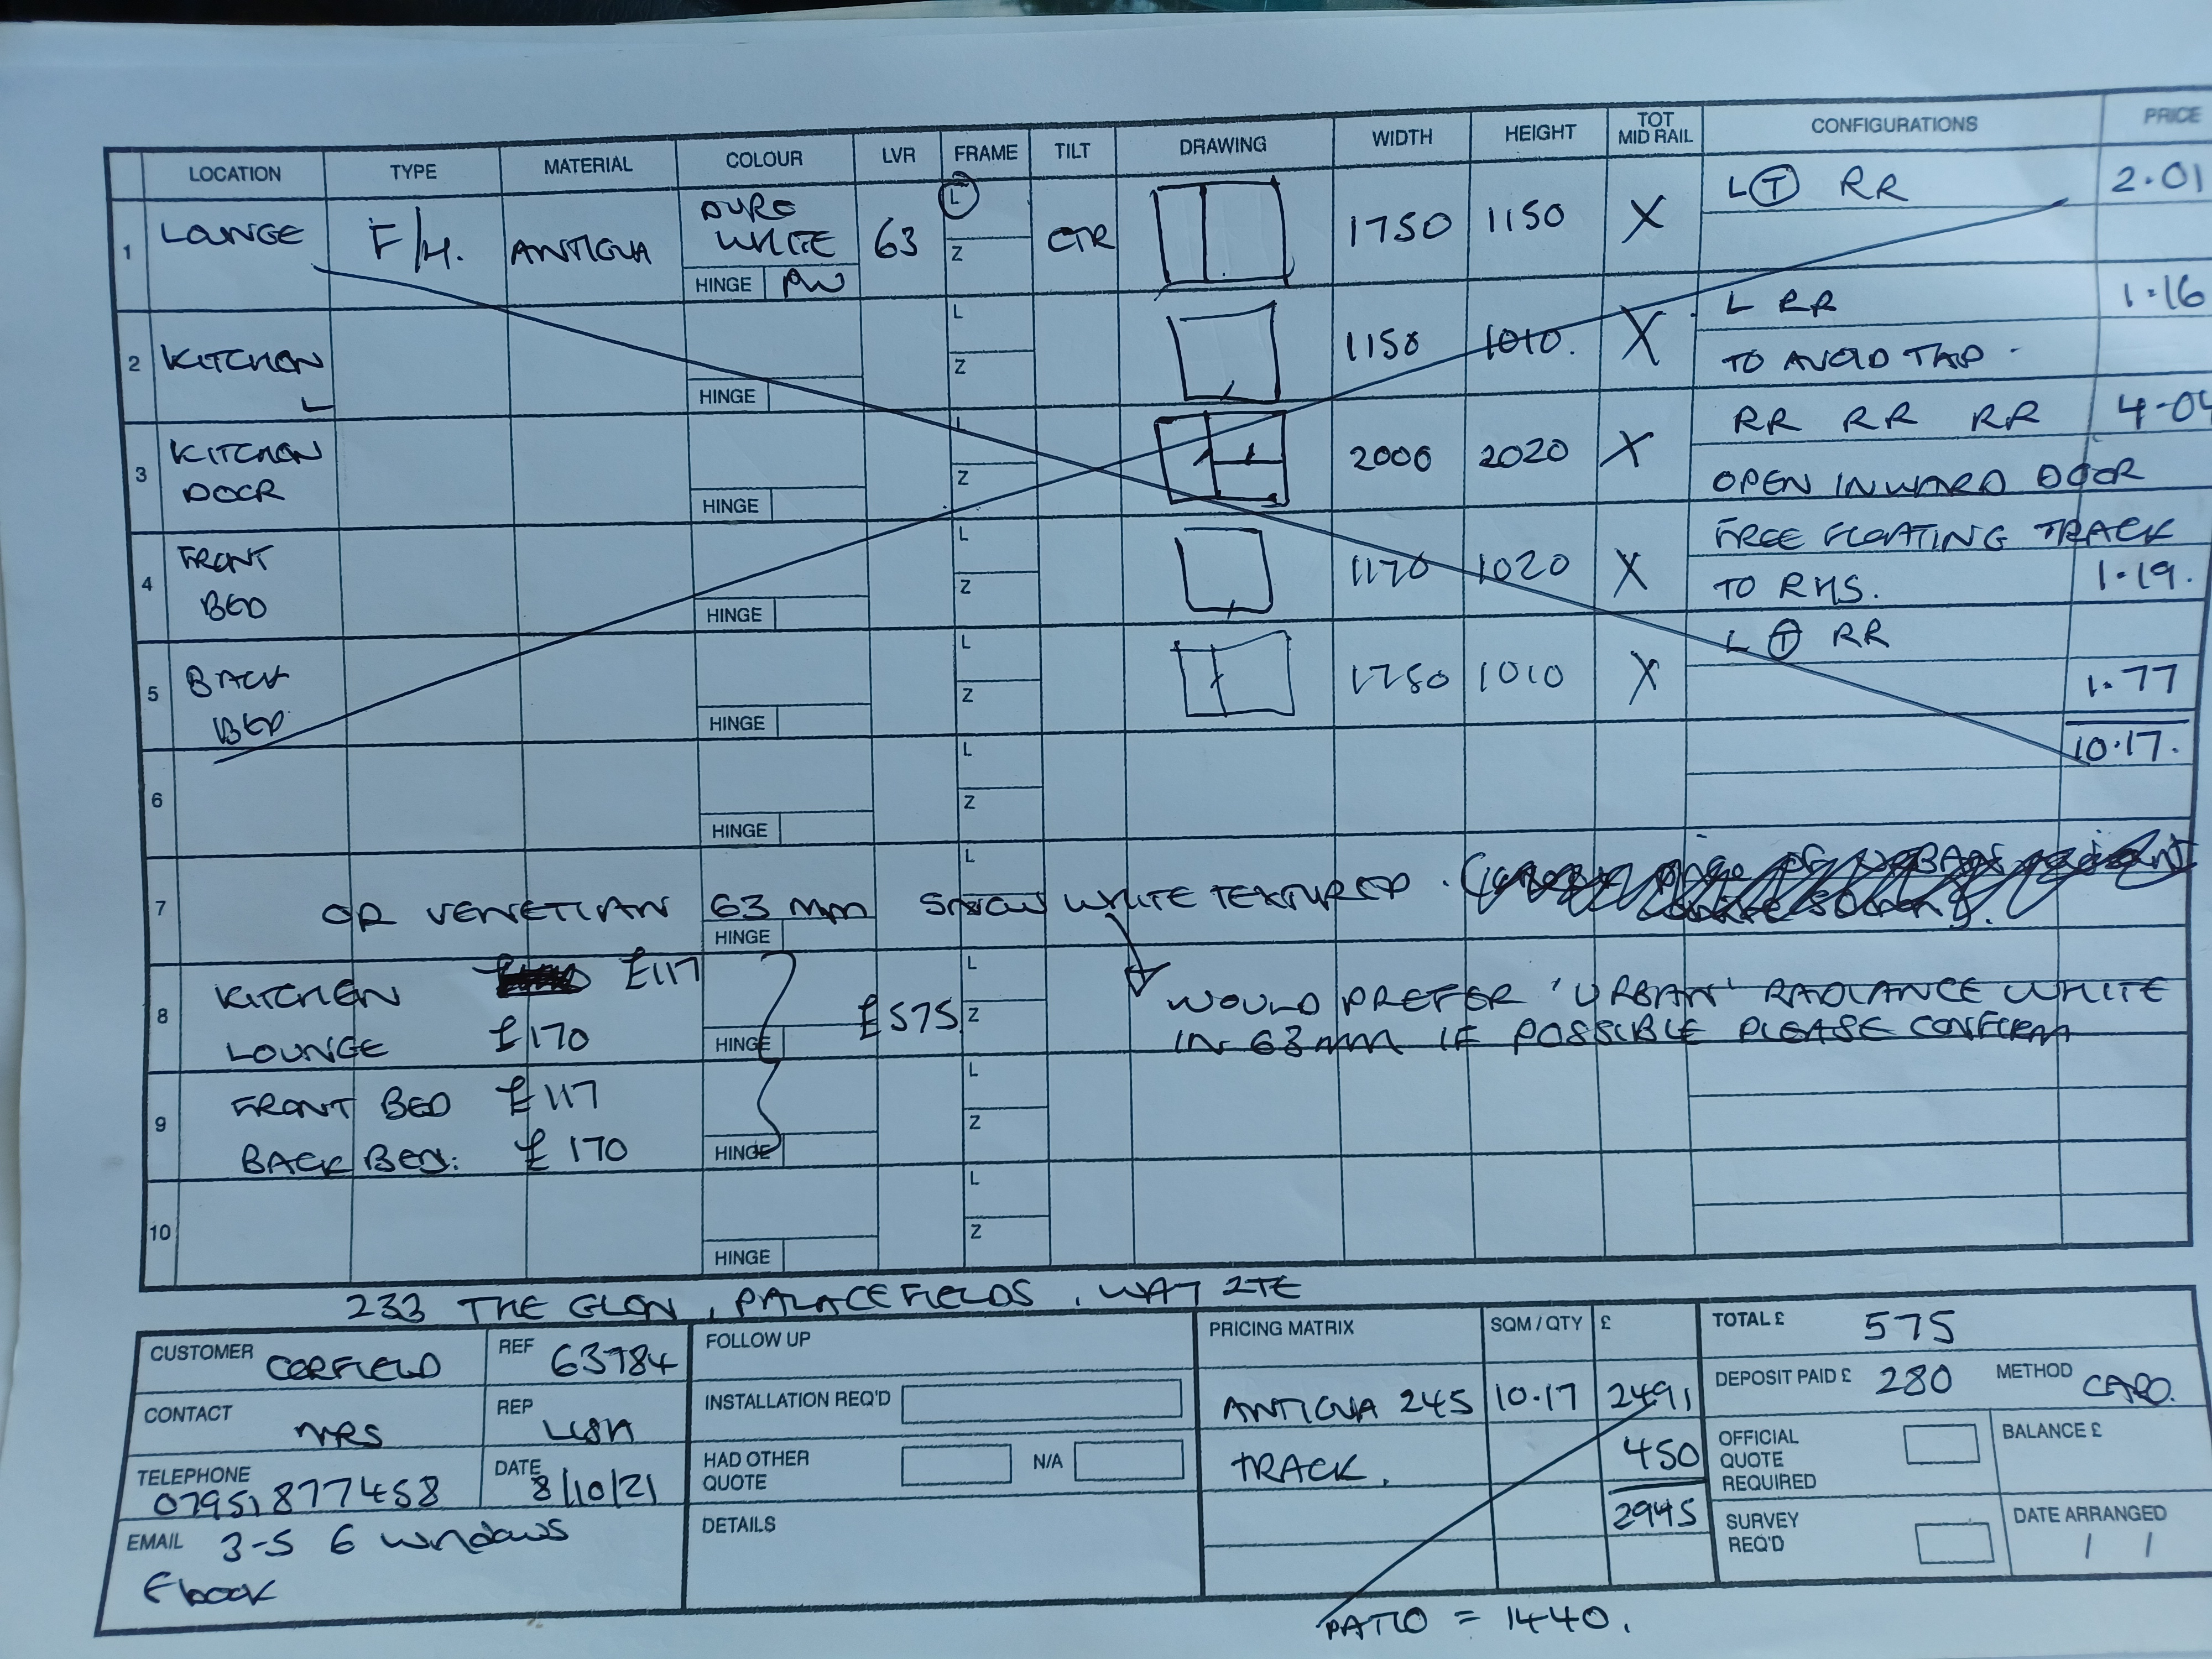 LOCATION TYPE MATERIAL COLOUR LVR FRAME TILT DRAWING WIDTH HEIGHT TOT MID RAIL CONFIGURATIONS PRICE
1 LOUNGE F/H. ANTIGUA PURE WHITE HINGE PW 63 L Z CTR 1750 1150 X L T RR 2.01
2 KITCHEN HINGE L Z 1150 1010. X L RR 1.16
TO AVOID TAP.
3 KITCHEN DOOR HINGE L Z 2000 2020 X RR RR RR 4.04
OPEN INWARD DOOR
4 FRONT BED HINGE L Z 1170 1020 X FREE FLOATING TRACK
TO RHS. 1.19.
5 BACK BED HINGE L Z 1750 1010 X L T RR
1.77
10.17.
6 HINGE L Z
7 OR VENETIAN 63 MM SNOW WHITE TEXTURED. HINGE L Z
8 KITCHEN £117 HINGE £575 L Z WOULD PREFER 'URBAN' RADIANCE WHITE
LOUNGE £170 IN 63MM IF POSSIBLE PLEASE CONFIRM
9 FRONT BED £117 HINGE L Z
BACK BED: £170
10 HINGE L Z
233 THE GLEN, PALACEFIELDS, WA7 2TE
CUSTOMER CORFIELD REF 63784
CONTACT MRS REP LISA
TELEPHONE 07951877458 DATE 8/10/21
EMAIL 3-5 6 windows
Ebook
FOLLOW UP
INSTALLATION REQ'D
HAD OTHER QUOTE N/A
DETAILS
PRICING MATRIX SQM / QTY £
ANTIGUA 245 10.17 2491
TRACK. 450
2945
PATIO = 1440.
TOTAL £ 575
DEPOSIT PAID £ 280 METHOD CARD.
OFFICIAL QUOTE REQUIRED BALANCE £
SURVEY REQ'D DATE ARRANGED
/ /